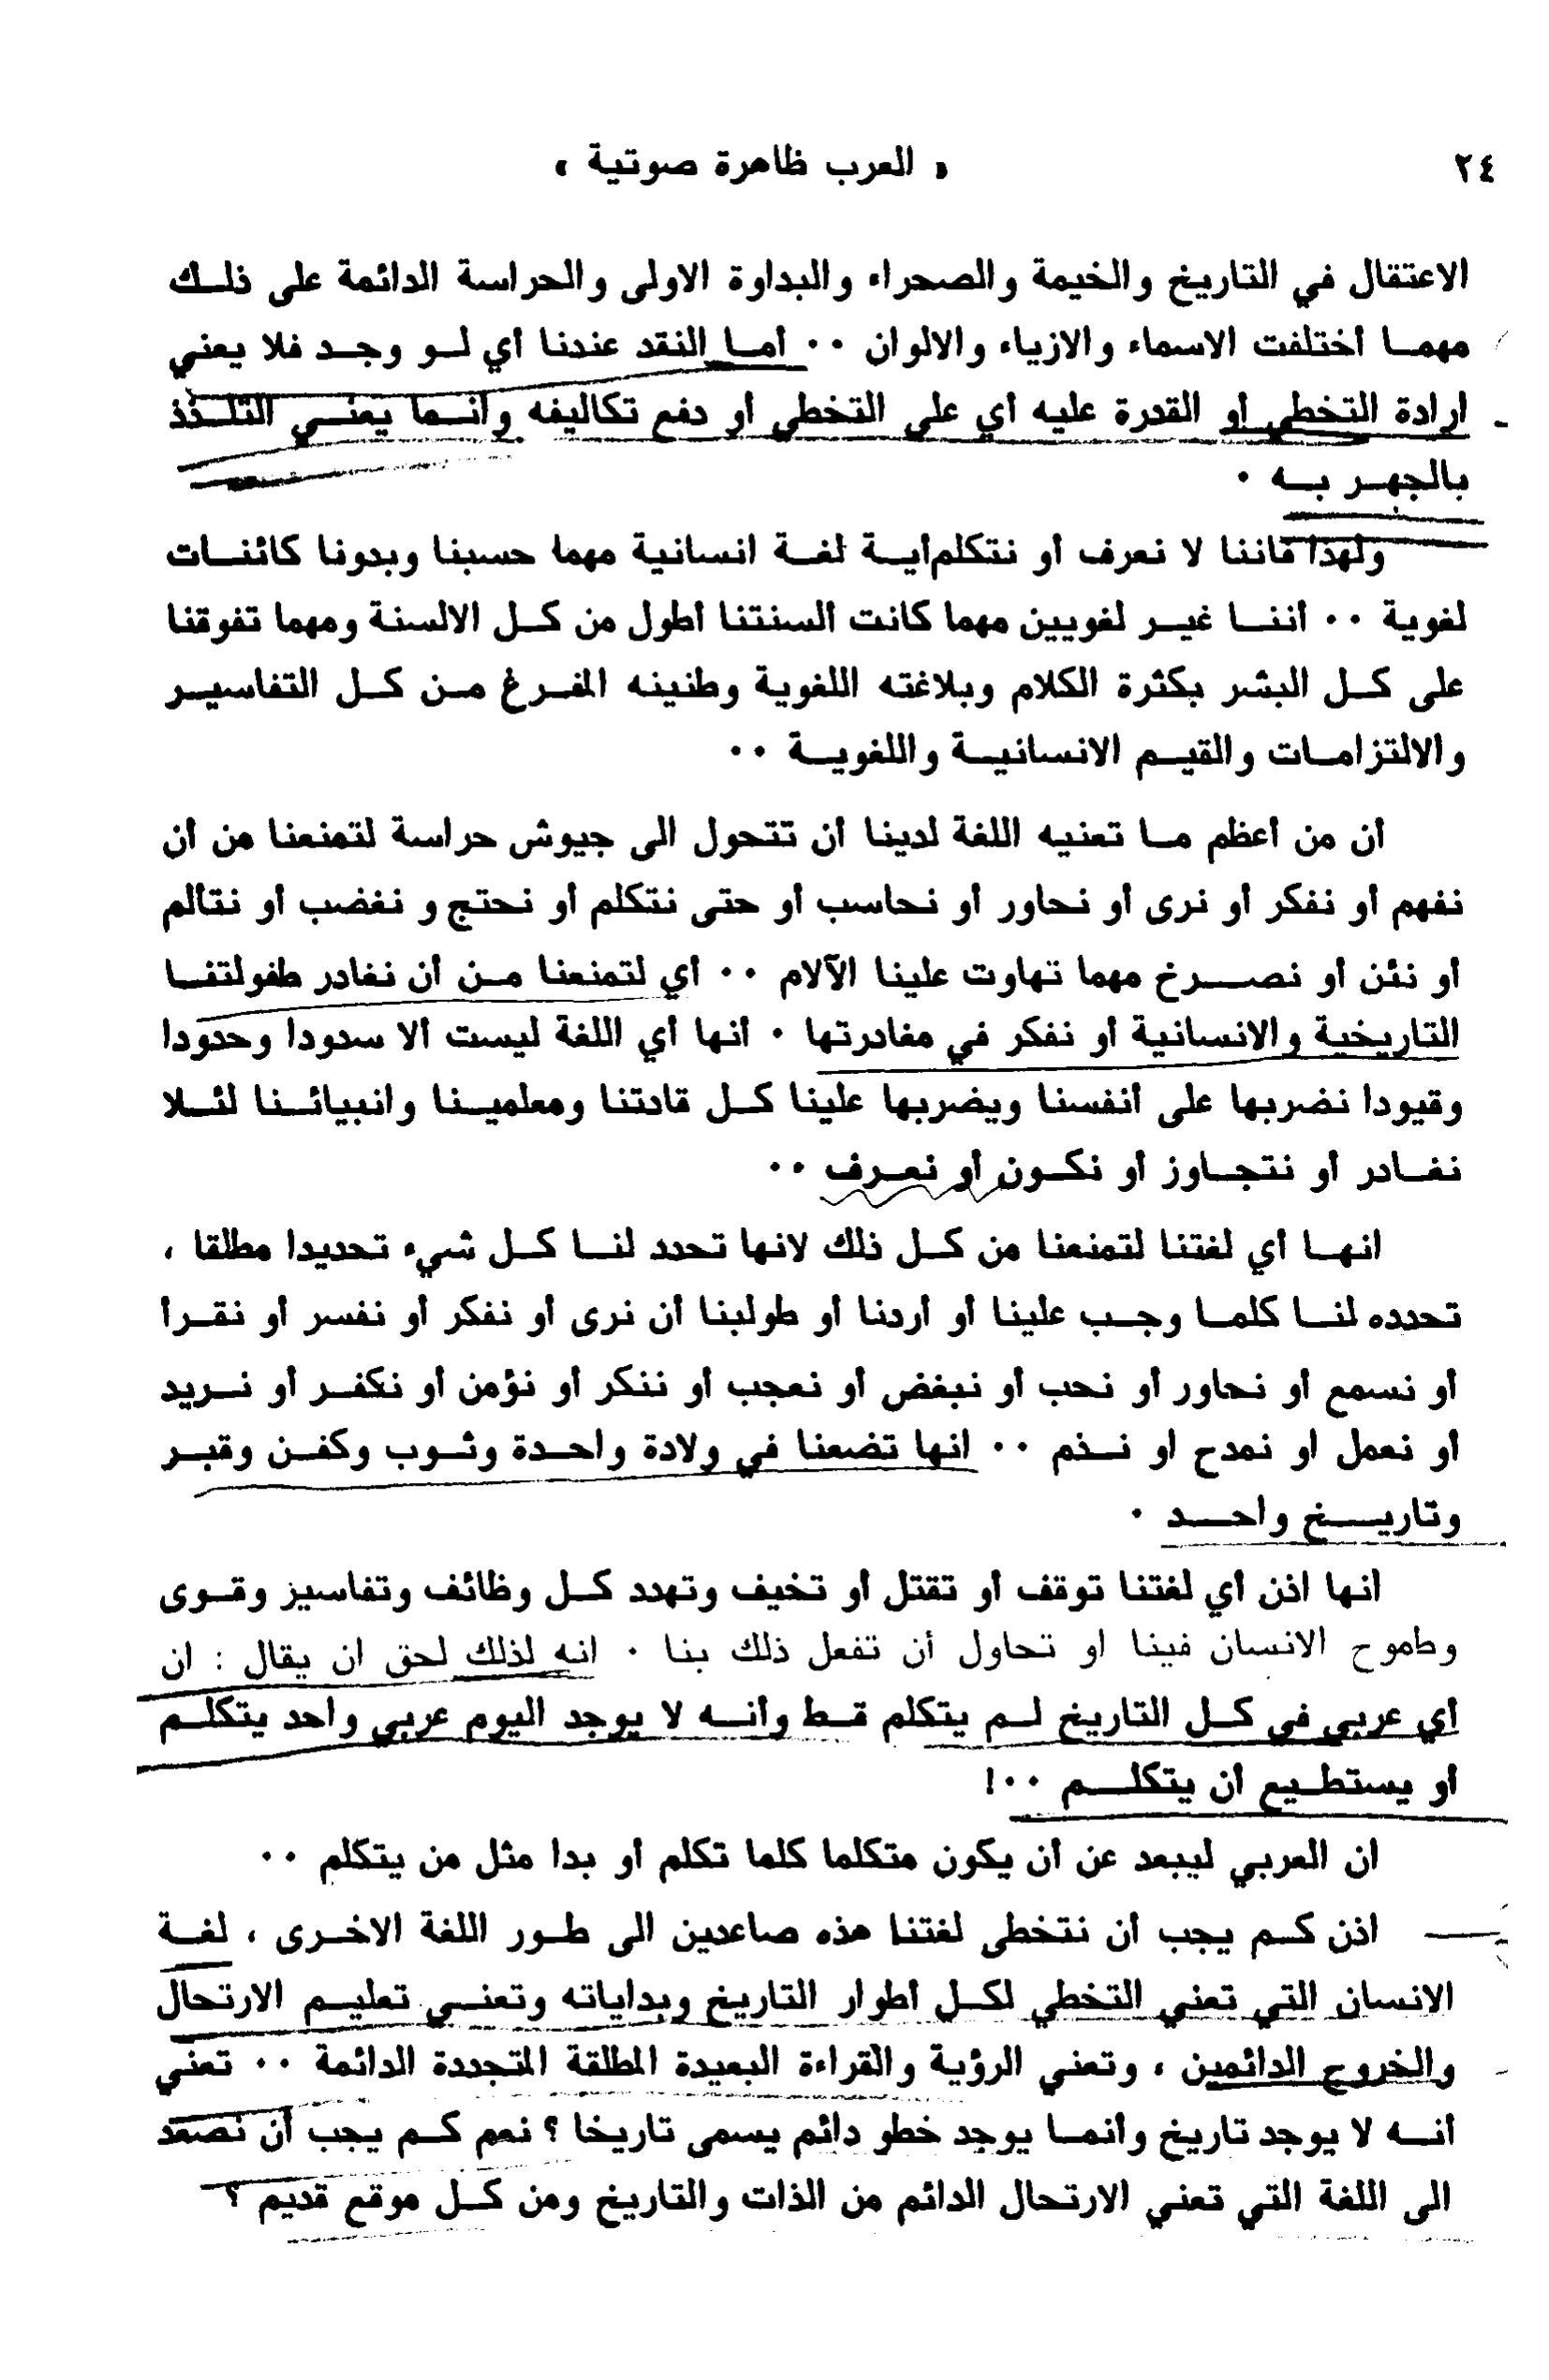 ٢٤
« العرب ظاهرة صوتية »
الاعتقال في التاريخ والخيمة والصحراء والبداوة الاولى والحراسة الدائمة على ذلـك
مهمـا أختلفت الاسماء والازياء والالوان ٠٠ أمـا النقد عندنا أي لـو وجـد فلا يعني
ارادة التخطي أو القدرة عليه أي على التخطي أو دفع تكاليفه وأنـما يعنـي التلـذذ
بالجهـر بـه ٠
ولهذا فاننا لا نعرف أو نتكلم أيـة لغـة انسانية مهما حسبنا وبدونا كائنـات
لغوية ٠٠ أننـا غيـر لغويين مهما كانت ألسنتنا أطول من كـل الالسنة ومهما تفوقنا
على كـل البشر بكثرة الكلام وبلاغته اللغوية وطنينه المفـرغ مـن كـل التفاسيـر
والالتزامـات والقيـم الانسانيـة واللغويـة ٠٠
أن من أعظم مـا تعنيه اللغة لدينا أن تتحول الى جيوش حراسة لتمنعنا من أن
نفهم أو نفكر أو نرى أو نحاور أو نحاسب أو حتى نتكلم أو نحتج و نغضب أو نتألم
أو نئن أو نصـرخ مهما تهاوت علينا الآلام ٠٠ أي لتمنعنا مـن أن نغادر طفولتنـا
التاريخية والانسانية أو نفكر في مغادرتها ٠ أنها أي اللغة ليست ألا سدودا وحدودا
وقيودا نضربها على أنفسنا ويضربها علينا كـل قادتنا ومعلميـنا وانبيائـنا لئـلا
نغـادر أو نتجـاوز أو نكـون أو نعـرف ٠٠
انهـا أي لغتنا لتمنعنا من كـل ذلك لانها تحدد لنـا كـل شيء تحديدا مطلقا ،
تحدده لنـا كلمـا وجـب علينا أو أردنا أو طولبنا أن نرى أو نفكر أو نفسر أو نقـرأ
أو نسمع أو نحاور أو نحب أو نبغض أو نعجب أو ننكر أو نؤمن أو نكفـر أو نـريد
أو نعمل او نمدح او نـذم ٠٠ انها تضعنا في ولادة واحـدة وثـوب وكفـن وقبـر
وتاريـخ واحـد ٠
انها اذن أي لغتنا توقف أو تقتل أو تخيف وتهدد كـل وظائف وتفاسيز وقـوى
وطموح الانسان فينا او تحاول أن تفعل ذلك بنا ٠ انه لذلك لحق ان يقال : ان
أي عربي في كـل التاريخ لـم يتكلم قـط وأنـه لا يوجد اليوم عربي واحد يتكلـم
أو يستطـيع أن يتكلـم ٠٠!
ان العربي ليبعد عن أن يكون متكلما كلما تكلم أو بدا مثل من يتكلم ٠٠
اذن كـم يجب أن نتخطى لغتنا هذه صاعدين الى طـور اللغة الاخـرى ، لغـة
الانسان التي تعني التخطي لكـل أطوار التاريخ وبداياته وتعنـي تعليـم الارتحال
والخروج الدائمين ، وتعني الرؤية والقراءة البعيدة المطلقة المتجددة الدائمة ٠٠ تعني
أنـه لا يوجد تاريخ وأنمـا يوجد خطو دائم يسمى تاريخا ؟ نعم كـم يجب أن نصعد
الى اللغة التي تعني الارتحال الدائم من الذات والتاريخ ومن كـل موقع قديم ؟